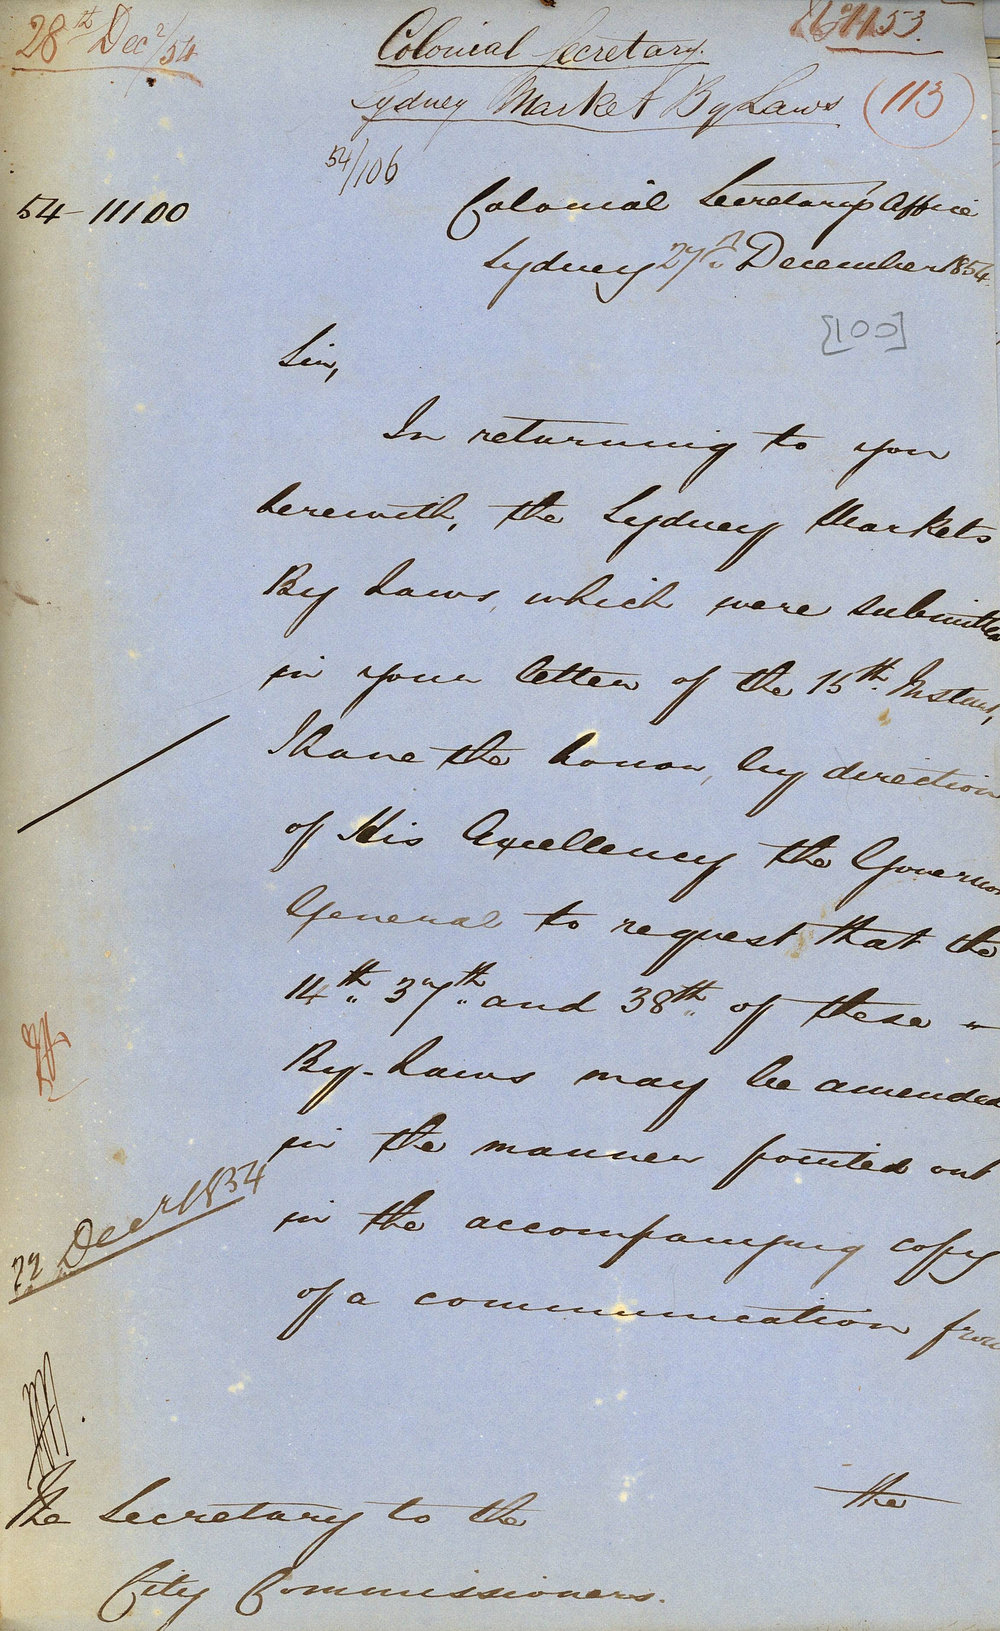 28th Decr/54
Colonial Secretary.
Sydney Market By Laws
(113)
54/106
54-11100
Colonial Secretary's Office
Sydney 27th December 1854.
[100]
Sir,
In returning to you
herewith, the Sydney Markets
By Laws, which were submitted
in your letter of the 15th. Instant,
I have the honor, by direction
of His Excellency the Governor
General to request that the
14th, 37th, and 38th of these
By-Laws may be amended
in the manner pointed out
22 Decr 1854
in the accompanying copy
of a communication from
the
The Secretary to the
City Commissioners.